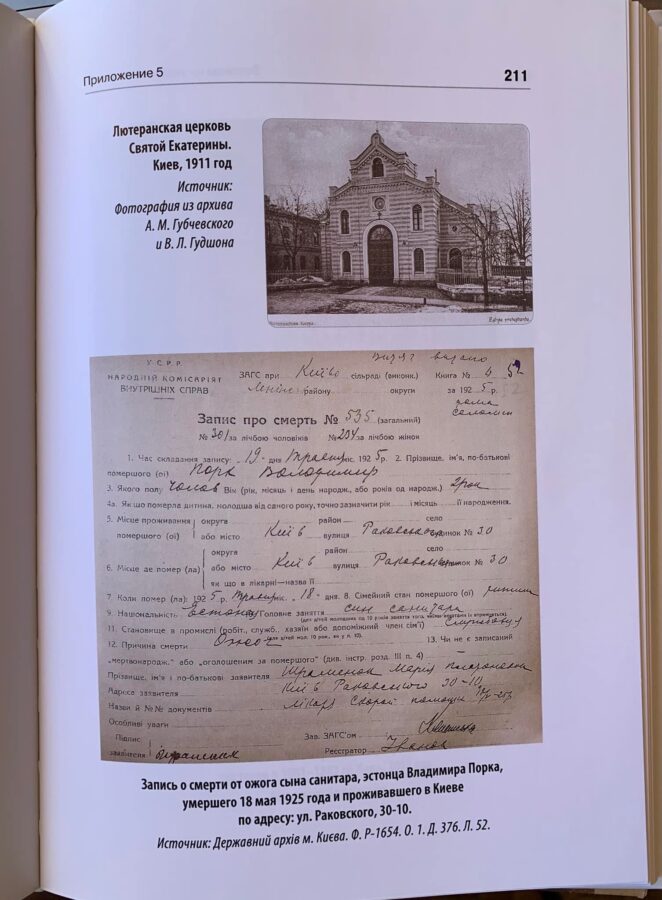 Приложение 5
211
Лютеранская церковь
Святой Екатерины.
Киев, 1911 год
Источник:
Фотография из архива
А. М. Губчевского
и В. Л. Гудшона
У.С.Р.Р.
НАРОДНІЙ КОМІСАРІЯТ
ВНУТРІШНІХ СПРАВ
ЗАГС при Київо сільраді (виконк.) Книга № 4 52
району округи за 1925 р.
Запис про смерть № 535 (загальний)
№ 301 за лічбою чоловіків № 234 за лічбою жінок
1. Час складання запису: 19 дня міс. 1925 р. 2. Прізвище, ім'я, по-батькові
помершого (ої) Порк Володимир
3. Якого полу Чолов Вік (рік, місяць і день народж., або років од народж.) 2 рок
4а. Як що померла дитина, молодша від одного року, точно зазначити рік місяць її народження.
5. Місце проживання округа район село
помершого (ої) або місто Київ вулиця Раковського будинок № 30
округа район село
6. Місце де помер (ла) або місто Київ вулиця Раковського будинок № 30
як що в лікарні—назва її
7. Коли помер (ла): 1925 р. міс. 18 дня. 8. Сімейний стан помершого (ої)
9. Національність Головне заняття син санитара
11. Становище в промислі (робіт., служб., хазяїн або допоміжний член сім'ї)
12. Причина смерти Ожог 13. Чи не є записаний
"мертвонародж." або "оголошеним за помершого" (див. інстр. розд. III п. 4)
Прізвище, ім'я і по-батькові заявителя Мария
Адреса заявителя Київ Раковського 30-10
Назви й №№ документів Лікаря Скорой помощи
Особливі уваги
Підпис Зав. ЗАГС'ом
заявителя Реєстратор
Запись о смерти от ожога сына санитара, эстонца Владимира Порка,
умершего 18 мая 1925 года и проживавшего в Киеве
по адресу: ул. Раковского, 30-10.
Источник: Державний архів м. Києва. Ф. Р-1654. О. 1. Д. 376. Л. 52.